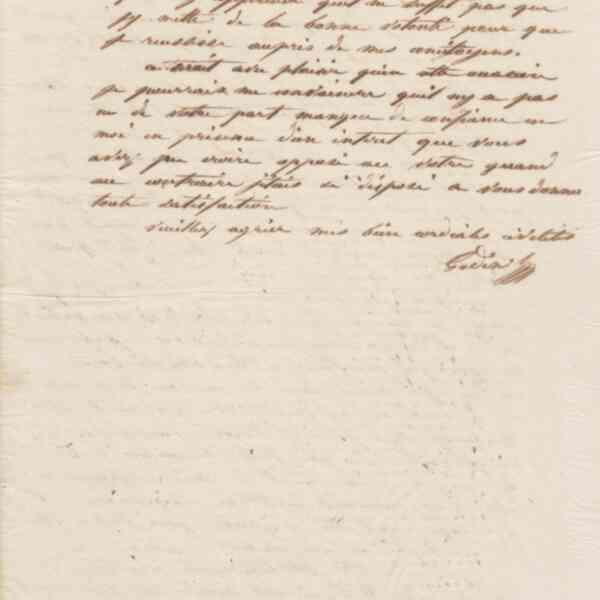 qu'il ne suffit pas que
j'y mette de la bonne volonté pour que
je réussisse auprès de mes concitoyens.
avec plaisir qu'en
je pourrais me convaincre qu'il n'y a pas
eu de votre part manque de confiance en
moi en présence d'un intérêt que vous
avez pu croire opposé au votre quand
au contraire j'étais si disposé a vous donner
toute satisfaction
Veuillez agréer mes bien cordiales civilités
Godin